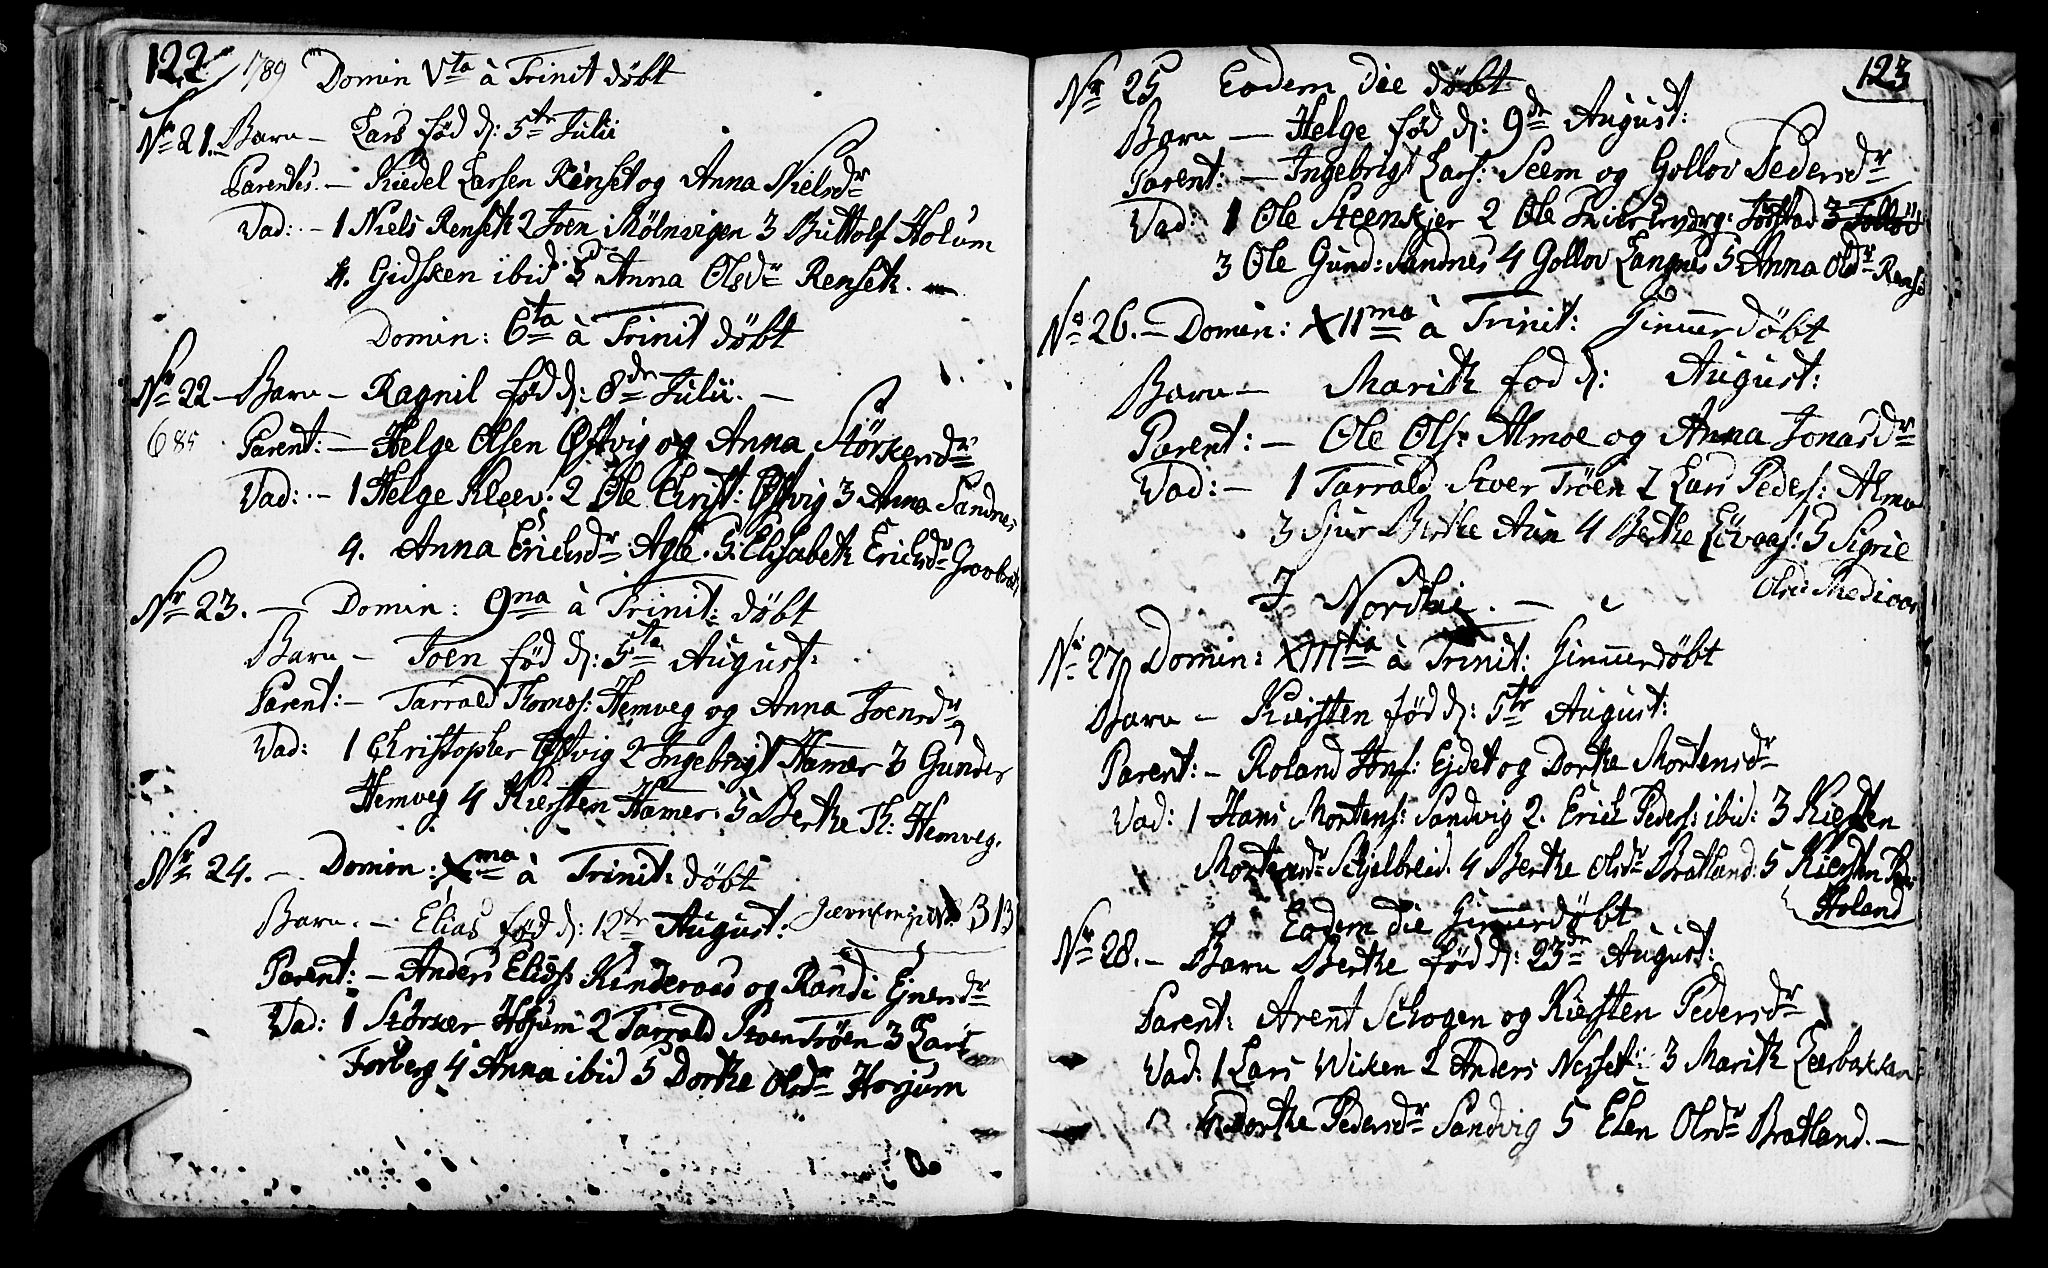 122 1789 Domin Vta à Trinit döbt
No 21. Barn - Lars fød d: 5te Julii
Parentes. - Kiedel Larsen Renset og Anna Nielsdr
Vad: - 1 Niels Renseth 2 Joen Mölnvigen 3 Buttolf Holum
4. Gidsken ibid: 5 Anna Olsdr Renseth.
Domin: 6ta à Trinit döbt
Nr 22 - Barn - Ragnil fød d: 8de Julii. -
685 Parent: - Helge Olsen Østvig og Anna Störkersdr
Vad: - 1 Helge Kleev: 2 Ole Christ: Østvig 3 Anna Sandnes
4. Anna Erichsdr Agle. 5. Elisabeth Erichsdr
Nr 23. - Domin: 9na à Trinit: döbt
Barn - Joen fød d: 5te August:
Parent: - Tarrald Thomæs: Hemveg og Anna Joensdr
Vad: 1 Christopher Østvig 2 Ingebrigt Hammer 3 Gunder
Hemveg 4 Kiersten Hamer: 5 Berthe Th: Hemveg.
Nr 24. - Domin: Xma à Trinit: döbt
Barn. - Elias fød d: 12te August: 313
Parent: - Anders Eliæs: Kinderaas og Randi Ejnersdr
Vad: 1 Störker Hojum 2 Tarrald StoerTröen 3 Lars
Forberg 4 Anna ibid 5 Dorthe Olsdr Hojum
123
Nr 25 Eodem die döbt
Barn - Helge fød d: 9de August:
Parent: - Ingebrigt Lars: Seem og Gollov Pedersdr
Vad: 1 Ole Steenkjer 2 Ole Jörstad 3
3 Ole Gund: Sandnes 4 Gollov Langnes 5 Anna Olsdr Rense
No 26. - Domin: XIIma à Trinit: döbt
Barn - Marith fod d: August:
Parent: - Ole Ols: Almoe og Anna Jonasdr
Vad: - 1 Tarrald Stoer Tröen 2 Lars Peders: Almo
3 Sjur Berthe Aun 4 Berthe Lövaas: 5 Sigrie
Olsd:
J Nordlie. -
No 27 Domin: XIIItia à Trinit: döbt
Barn - Kiersten fød d: 5te August:
Parent: - Roland Jons: Ejdet og Dorthe Mortensdr
Vad: 1 Hans Mortens: Sandvig 2. Erich Peders: ibid: 3 Kiesten
Mortensdr Skjelbreid. 4 Berthe Olsdr Bratland: 5 Kiersten
Holand
Eodem die döbt
Nr 28. - Barn Berthe fød d: 23de August:
Parent: Arent Schogen og Kiersten Pedersdr
Vad: 1 Lars Wiken 2 Anders Nesset: 3 Marith Leerbakken
4 Dorthe Pedersdr Sandvig 5 Elen Olsdr Bratland. -